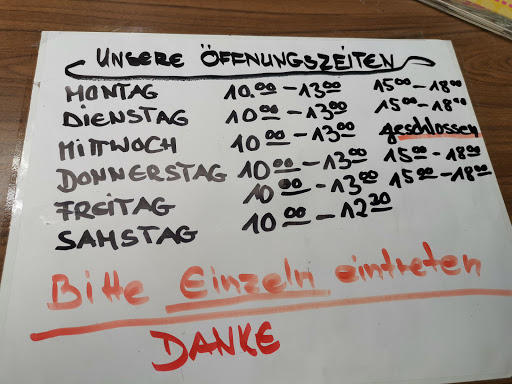 UNSERE ÖFFNUNGSZEITEN
MONTAG 10.00 – 13.00 15.00 – 18.00
DIENSTAG 10.00 – 13.00 15.00 – 18.00
MITTWOCH 10.00 – 13.00 geschlossen
DONNERSTAG 10.00 – 13.00 15.00 – 18.00
FREITAG 10.00 – 13.00 15.00 – 18.00
SAMSTAG 10.00 – 12.30
Bitte Einzeln eintreten
DANKE